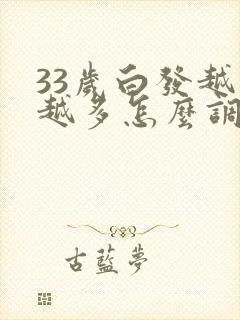 33歲白發越
越多怎麼調
古藍夢